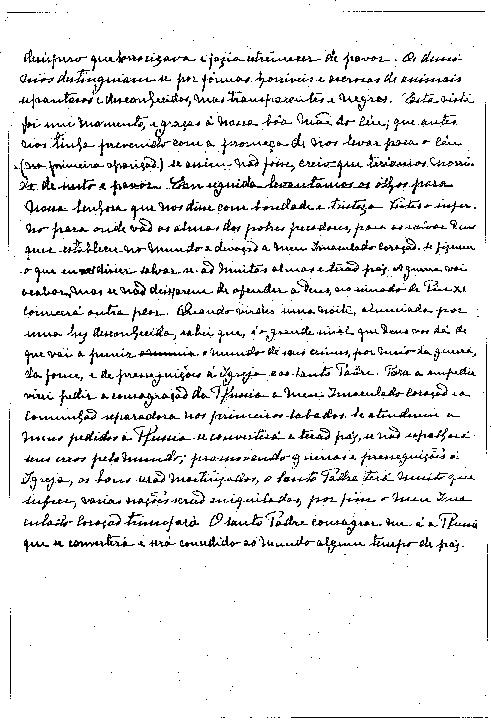 desespero que horrorizava e fazia estremecer de pavor. Os demo-
nios destinguiam-se por formas horriveis e ascrosas de animais
espantosos e desconhecidos, mas transparentes e negros. Esta vista
foi um momento, e graças à nossa bôa Mãe do Céu; que antes
nos tinha prevenido com a promeça de nos levar para o Céu
(na primeira aparição) se assim não fosse, creio que teriamos morri-
do de susto e pavor. Em seguida, levantámos os olhos para
Nossa Senhora que nos disse com bondade e tristeza: Vistes o infer-
no para onde vão as almas dos pobres pecadores, para as salvar Deus
quer establecer no mundo a devoção a meu Imaculado Coração. Se fizerem
o que eu vos disser salvar-se-ão muitas almas e terão paz. A guerra vai
acabar, mas se não deixarem de ofender a Deus, no reinado de Pio XI
começará outra peor. Quando virdes uma noite, alumiada por
uma luz desconhecida, sabei que, é o grande sinal que Deus vos dá de
que vai a punir o mundo de seus crimes, por meio da guerra,
da fome, e de perseguições à Igreja e ao Santo Padre. Para a empedir
virei pedir a consagração da Russia a meu Imaculado Coração e a
comunhão reparadora nos primeiros sabados. Se atenderem a
meus pedidos a Russia se converterá e terão paz, se não espalhará
seus erros pelo mundo, promovendo guerras e perseguições à
Igreja, os bons serão martirizados, o Santo Padre terá muito que
sufrer, varias nações serão aniquiladas, por fim o meu Ima-
culado Coração triunfará. O Santo Padre consagrar-me-á a Russia
que se converterá e será concedido ao mundo algum tempo de paz.